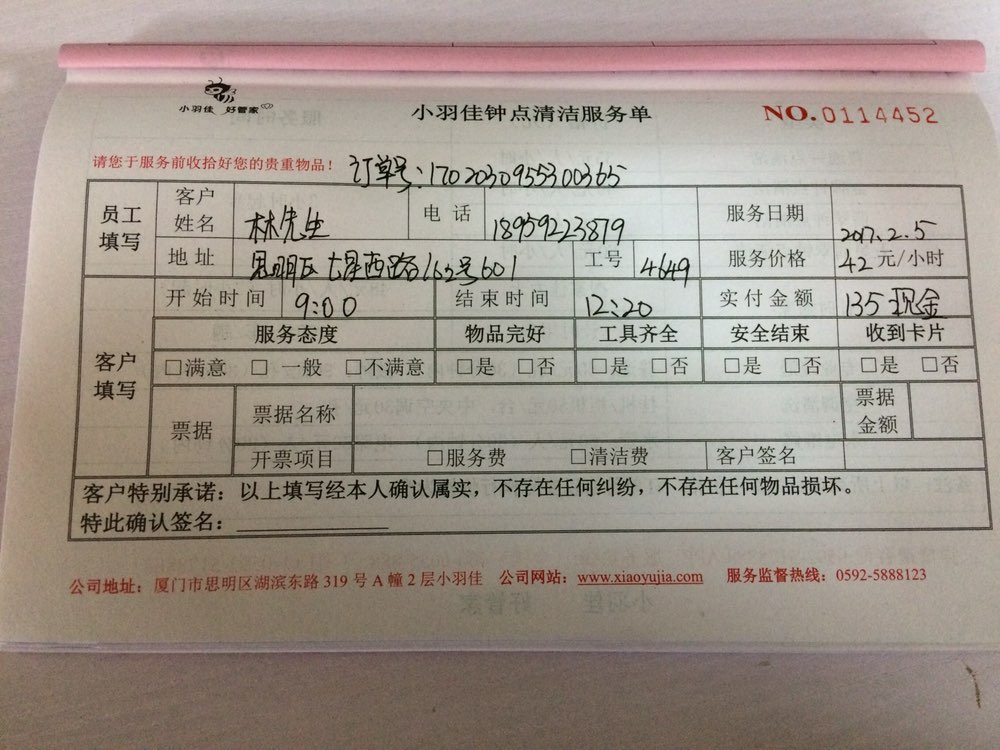 小羽佳 好管家
小羽佳钟点清洁服务单
NO.0114452
请您于服务前收拾好您的贵重物品！
订单号：1702030955300365
员工填写 客户姓名 林先生 电话 18959223879 服务日期 2017.2.5
地址 思明区七星西路163号601 工号 4649 服务价格 42元/小时
客户填写 开始时间 9:00 结束时间 12:20 实付金额 135现金
服务态度 物品完好 工具齐全 安全结束 收到卡片
□满意 □一般 □不满意 □是 □否 □是 □否 □是 □否 □是 □否
票据 票据名称 票据金额
开票项目 □服务费 □清洁费 客户签名
客户特别承诺：以上填写经本人确认属实，不存在任何纠纷，不存在任何物品损坏。
特此确认签名：
公司地址：厦门市思明区湖滨东路 319 号 A 幢 2 层小羽佳 公司网站：www.xiaoyujia.com 服务监督热线：0592-5888123